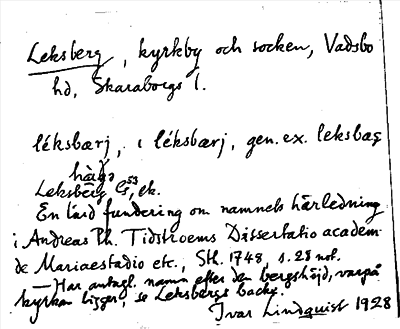 Leksberg, kyrkby och socken, Vadsbo
hd, Skaraborgs l.
léksbærj, i léksbærj, gen. ex. leksbæs
Leksberg
En lärd fundering om namnets härledning
i Andreas Ph. Tidstroems Dissertatio academ
de Mariaestadio etc., Sth. 1748, s. 28 not.
— Har antagl. namn efter den bergshöjd, varpå
kyrkan ligger, se Leksbergs backe.
Ivar Lindquist 1928